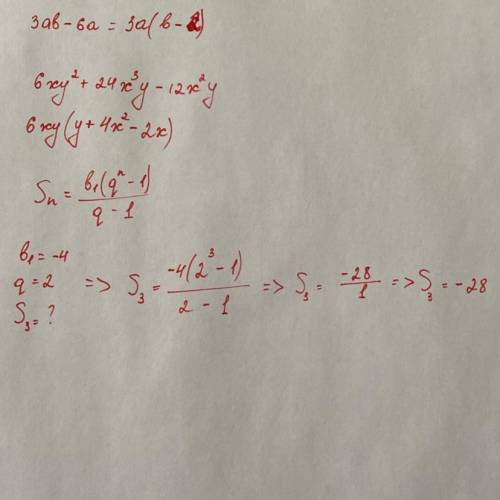 3ab - 6a = 3a(b - 2)
6xy² + 24x³y - 12x²y
6xy(y + 4x² - 2x)
Sₙ = b₁(qⁿ - 1) / q - 1
b₁ = -4
q = 2
S₃ = ?
=> S₃ = -4(2³ - 1) / 2 - 1 => S₃ = -28 / 1 => S₃ = -28